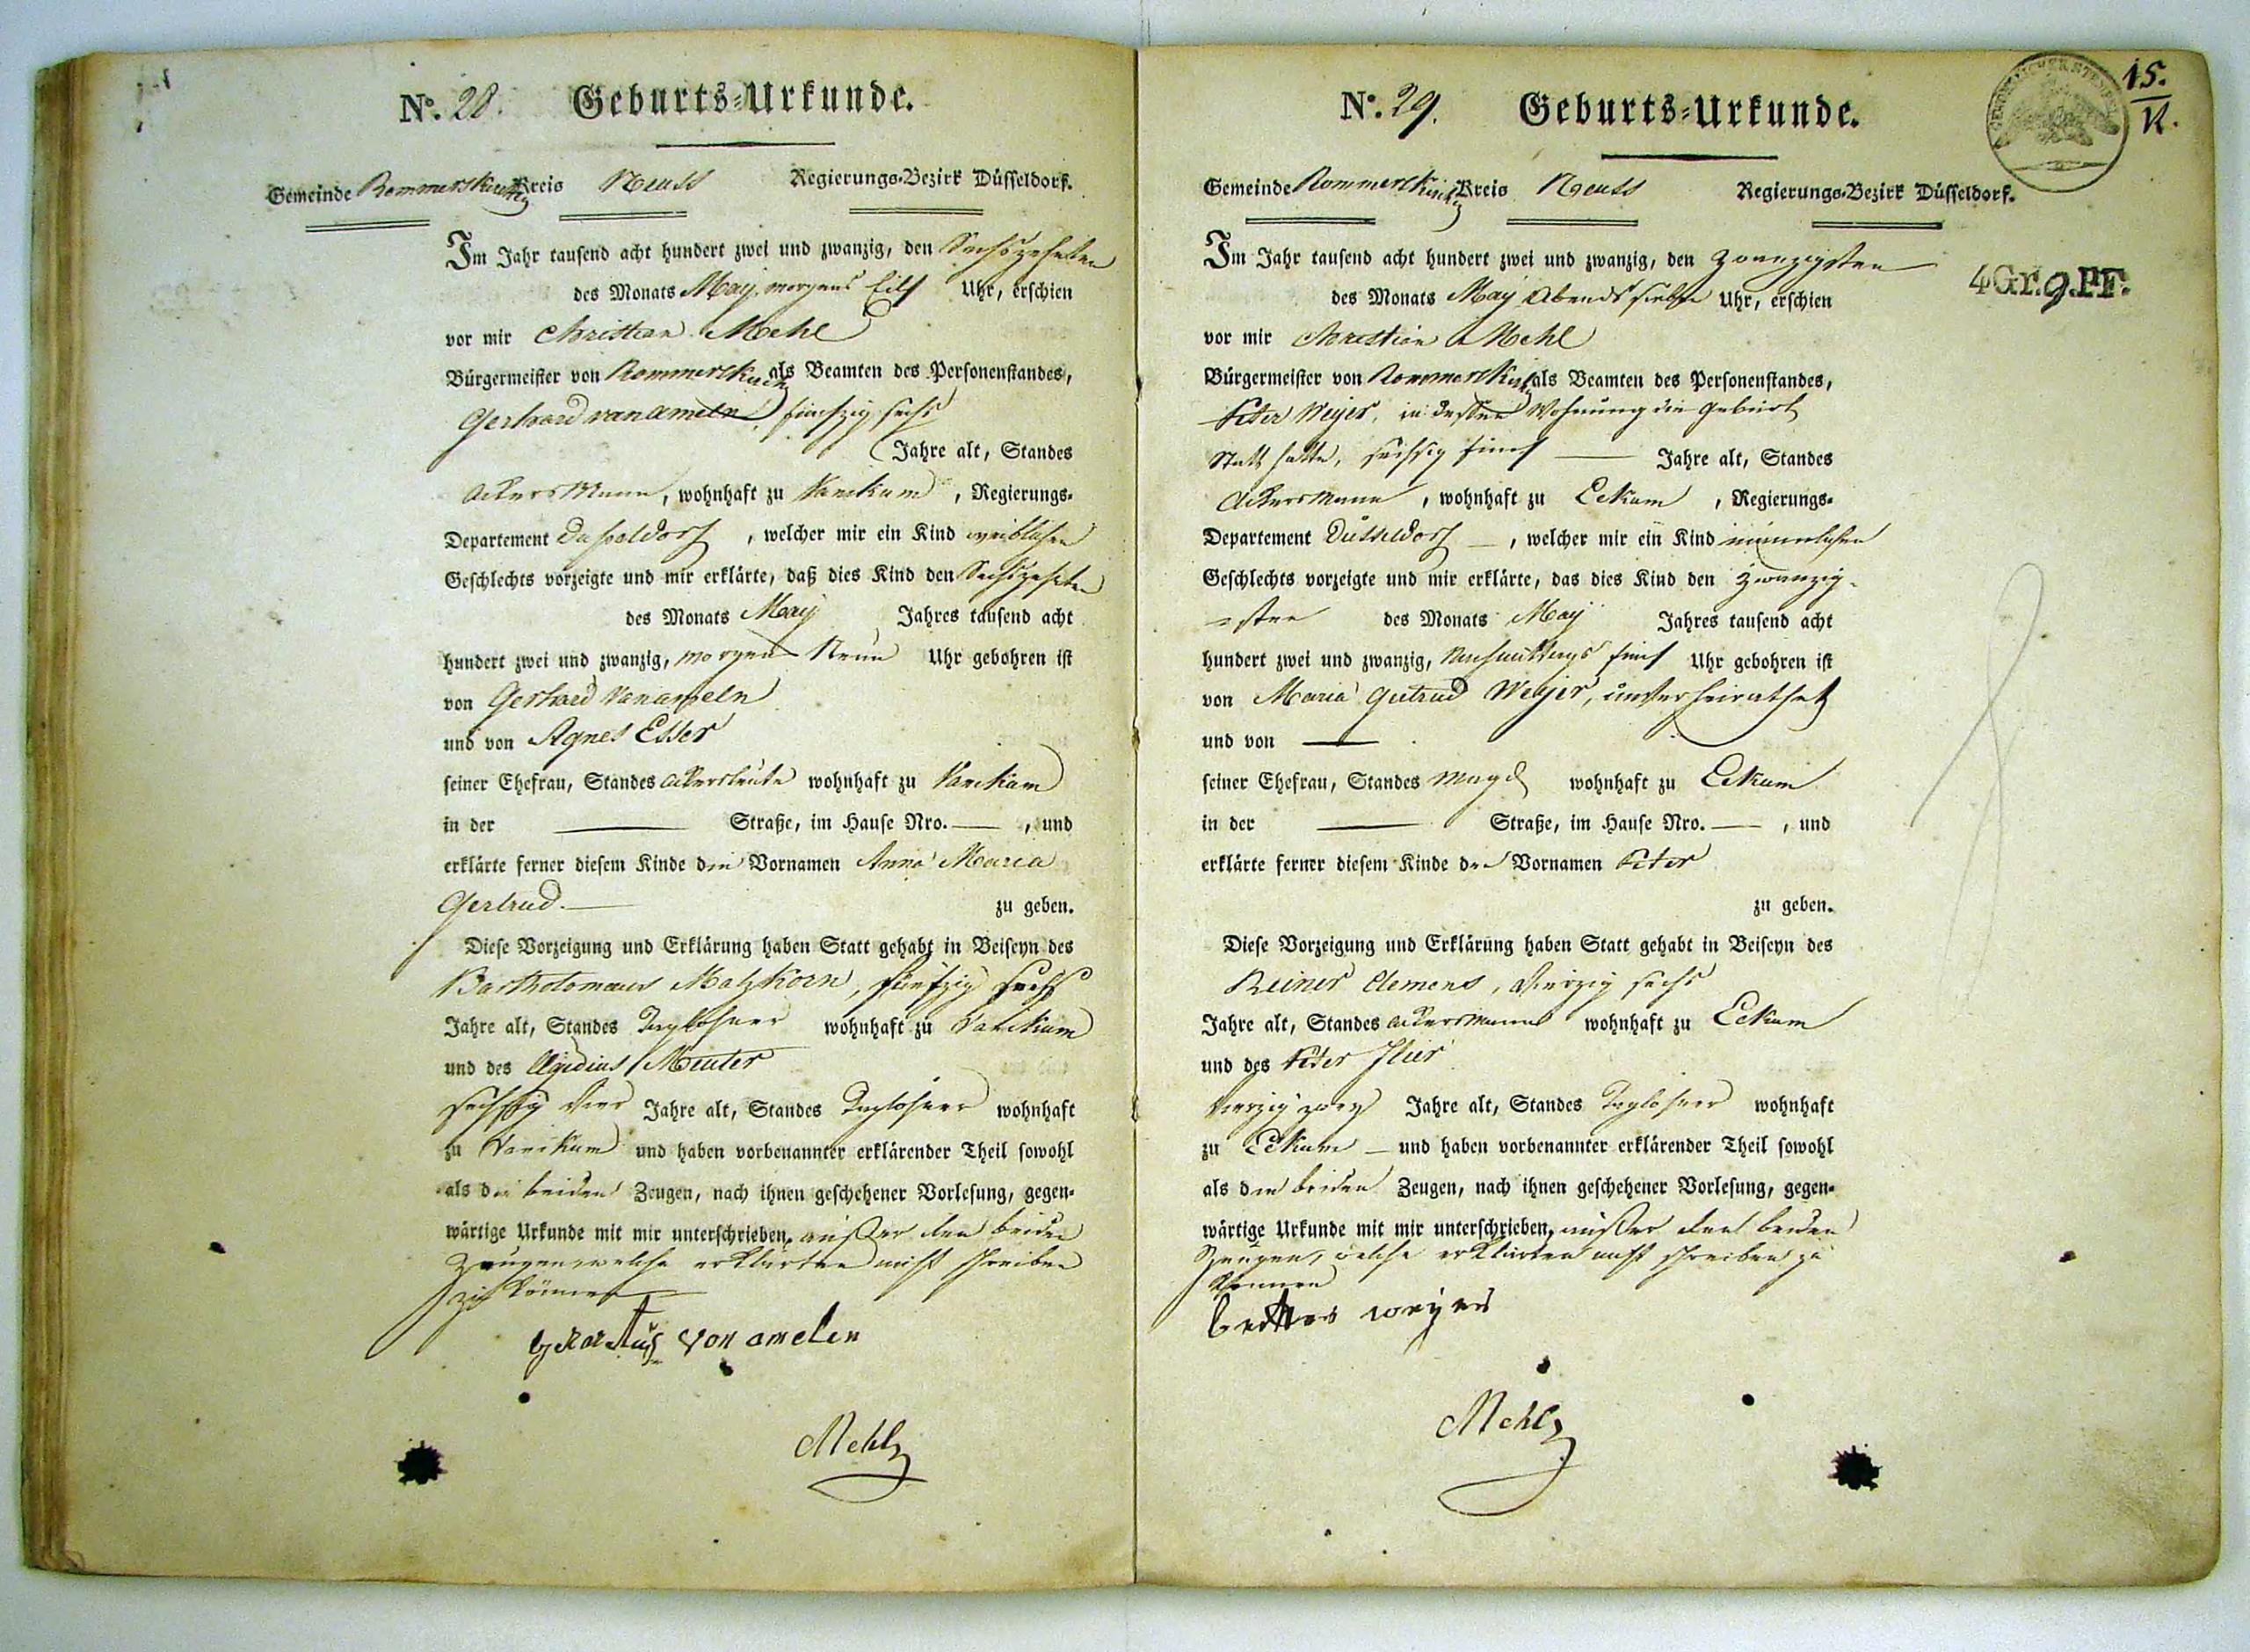 No. 28. Geburts-Urkunde.
Gemeinde Rommerskirchen Kreis Neuss Regierungs-Bezirk Düsseldorf.
Im Jahr tausend acht hundert zwei und zwanzig, den Sechszehnten
des Monats May morgens Eilf Uhr, erschien
vor mir Christian Mehl
Bürgermeister von Rommerskirchen als Beamten des Personenstandes,
Gerhard van ameln, fünfzig sechs
Jahre alt, Standes
Ackersmann, wohnhaft zu Vanikum, Regierungs-
Departement Dusseldorf, welcher mir ein Kind weiblichen
Geschlechts vorzeigte und mir erklärte, daß dies Kind den Sechszehnten
des Monats May Jahres tausend acht
hundert zwei und zwanzig, morgens Neun Uhr gebohren ist
von Gerhard Vanameln
und von Agnes Esser
seiner Ehefrau, Standes Ackersleute wohnhaft zu Vanikum
in der — Straße, im Hause Nro. —, und
erklärte ferner diesem Kinde die Vornamen Anna Maria
Gertrud.— zu geben.
Diese Vorzeigung und Erklärung haben Statt gehabt in Beiseyn des
Bartholomaus Malzkorn, fünfzig sechs
Jahre alt, Standes Taglöhner wohnhaft zu Vanikum
und des Aegidius Meuter
sechszig vier Jahre alt, Standes Taglöhner wohnhaft
zu Vanikum und haben vorbenannter erklärender Theil sowohl
als die beiden Zeugen, nach ihnen geschehener Vorlesung, gegen-
wärtige Urkunde mit mir unterschrieben, außer den beiden
Zeugen welche erklärten nicht schreiben
zu können
gerardus von amelen
Mehl
No. 29. Geburts-Urkunde.
15.
12.
Gemeinde Rommerskirchen Kreis Neuss Regierungs-Bezirk Düsseldorf.
Im Jahr tausend acht hundert zwei und zwanzig, den Zwanzigsten
4Gr.9.PF.
des Monats May Abends sieben Uhr, erschien
vor mir Christian Mehl
Bürgermeister von Rommerskirchen als Beamten des Personenstandes,
Peter Weyer, in dessen Wohnung die Geburt
Statt hatte, sechszig fünf — Jahre alt, Standes
Ackersmann, wohnhaft zu Eckum, Regierungs-
Departement Düsseldorf —, welcher mir ein Kind männlichen
Geschlechts vorzeigte und mir erklärte, das dies Kind den zwanzig-
-sten des Monats May Jahres tausend acht
hundert zwei und zwanzig, Nachmittags fünf Uhr gebohren ist
von Maria Gertrud Weyer, unverheirathet
und von —
seiner Ehefrau, Standes Magd wohnhaft zu Eckum
in der — Straße, im Hause Nro. —, und
erklärte ferner diesem Kinde den Vornamen Peter
zu geben.
Diese Vorzeigung und Erklärung haben Statt gehabt in Beiseyn des
Reiner Clemens, vierzig sechs
Jahre alt, Standes Ackersmann wohnhaft zu Eckum
und des Peter
vierzig zwey Jahre alt, Standes Taglöhner wohnhaft
zu Eckum — und haben vorbenannter erklärender Theil sowohl
als die beiden Zeugen, nach ihnen geschehener Vorlesung, gegen-
wärtige Urkunde mit mir unterschrieben, außer den beiden
Zeugen, welche erklärten nicht schreiben zu
können
weyers
Mehl